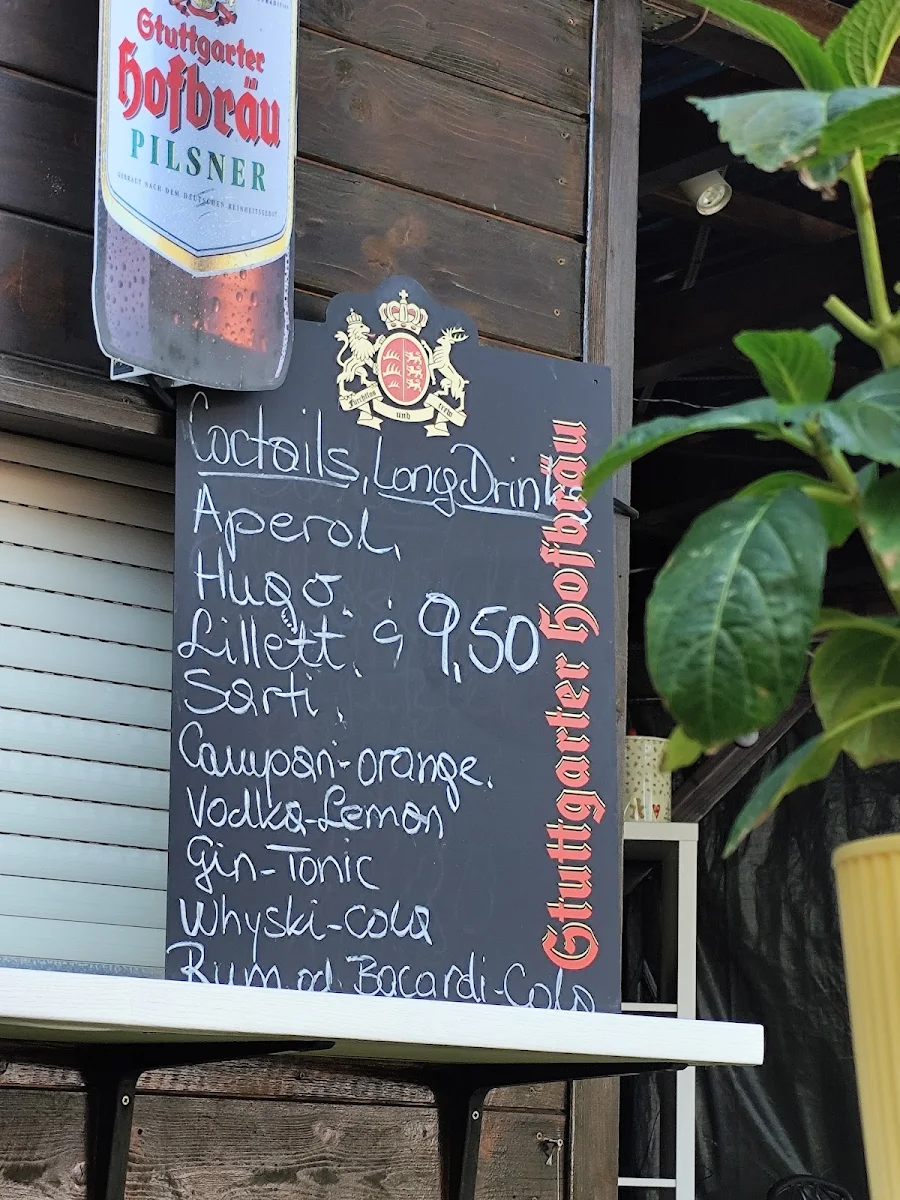 Stuttgarter
Hofbräu
PILSNER
GEBRAUT NACH DEM DEUTSCHEN REINHEITSGEBOT
Furchtlos und trew
Coctails, Long Drinks
Aperol,
Hugo,
Lillett, á 9,50
Sarti,
Campari-orange,
Vodka-Lemon
Gin-Tonic
Whyski-Cola
Rum od. Bacardi-Cola
Stuttgarter Hofbräu